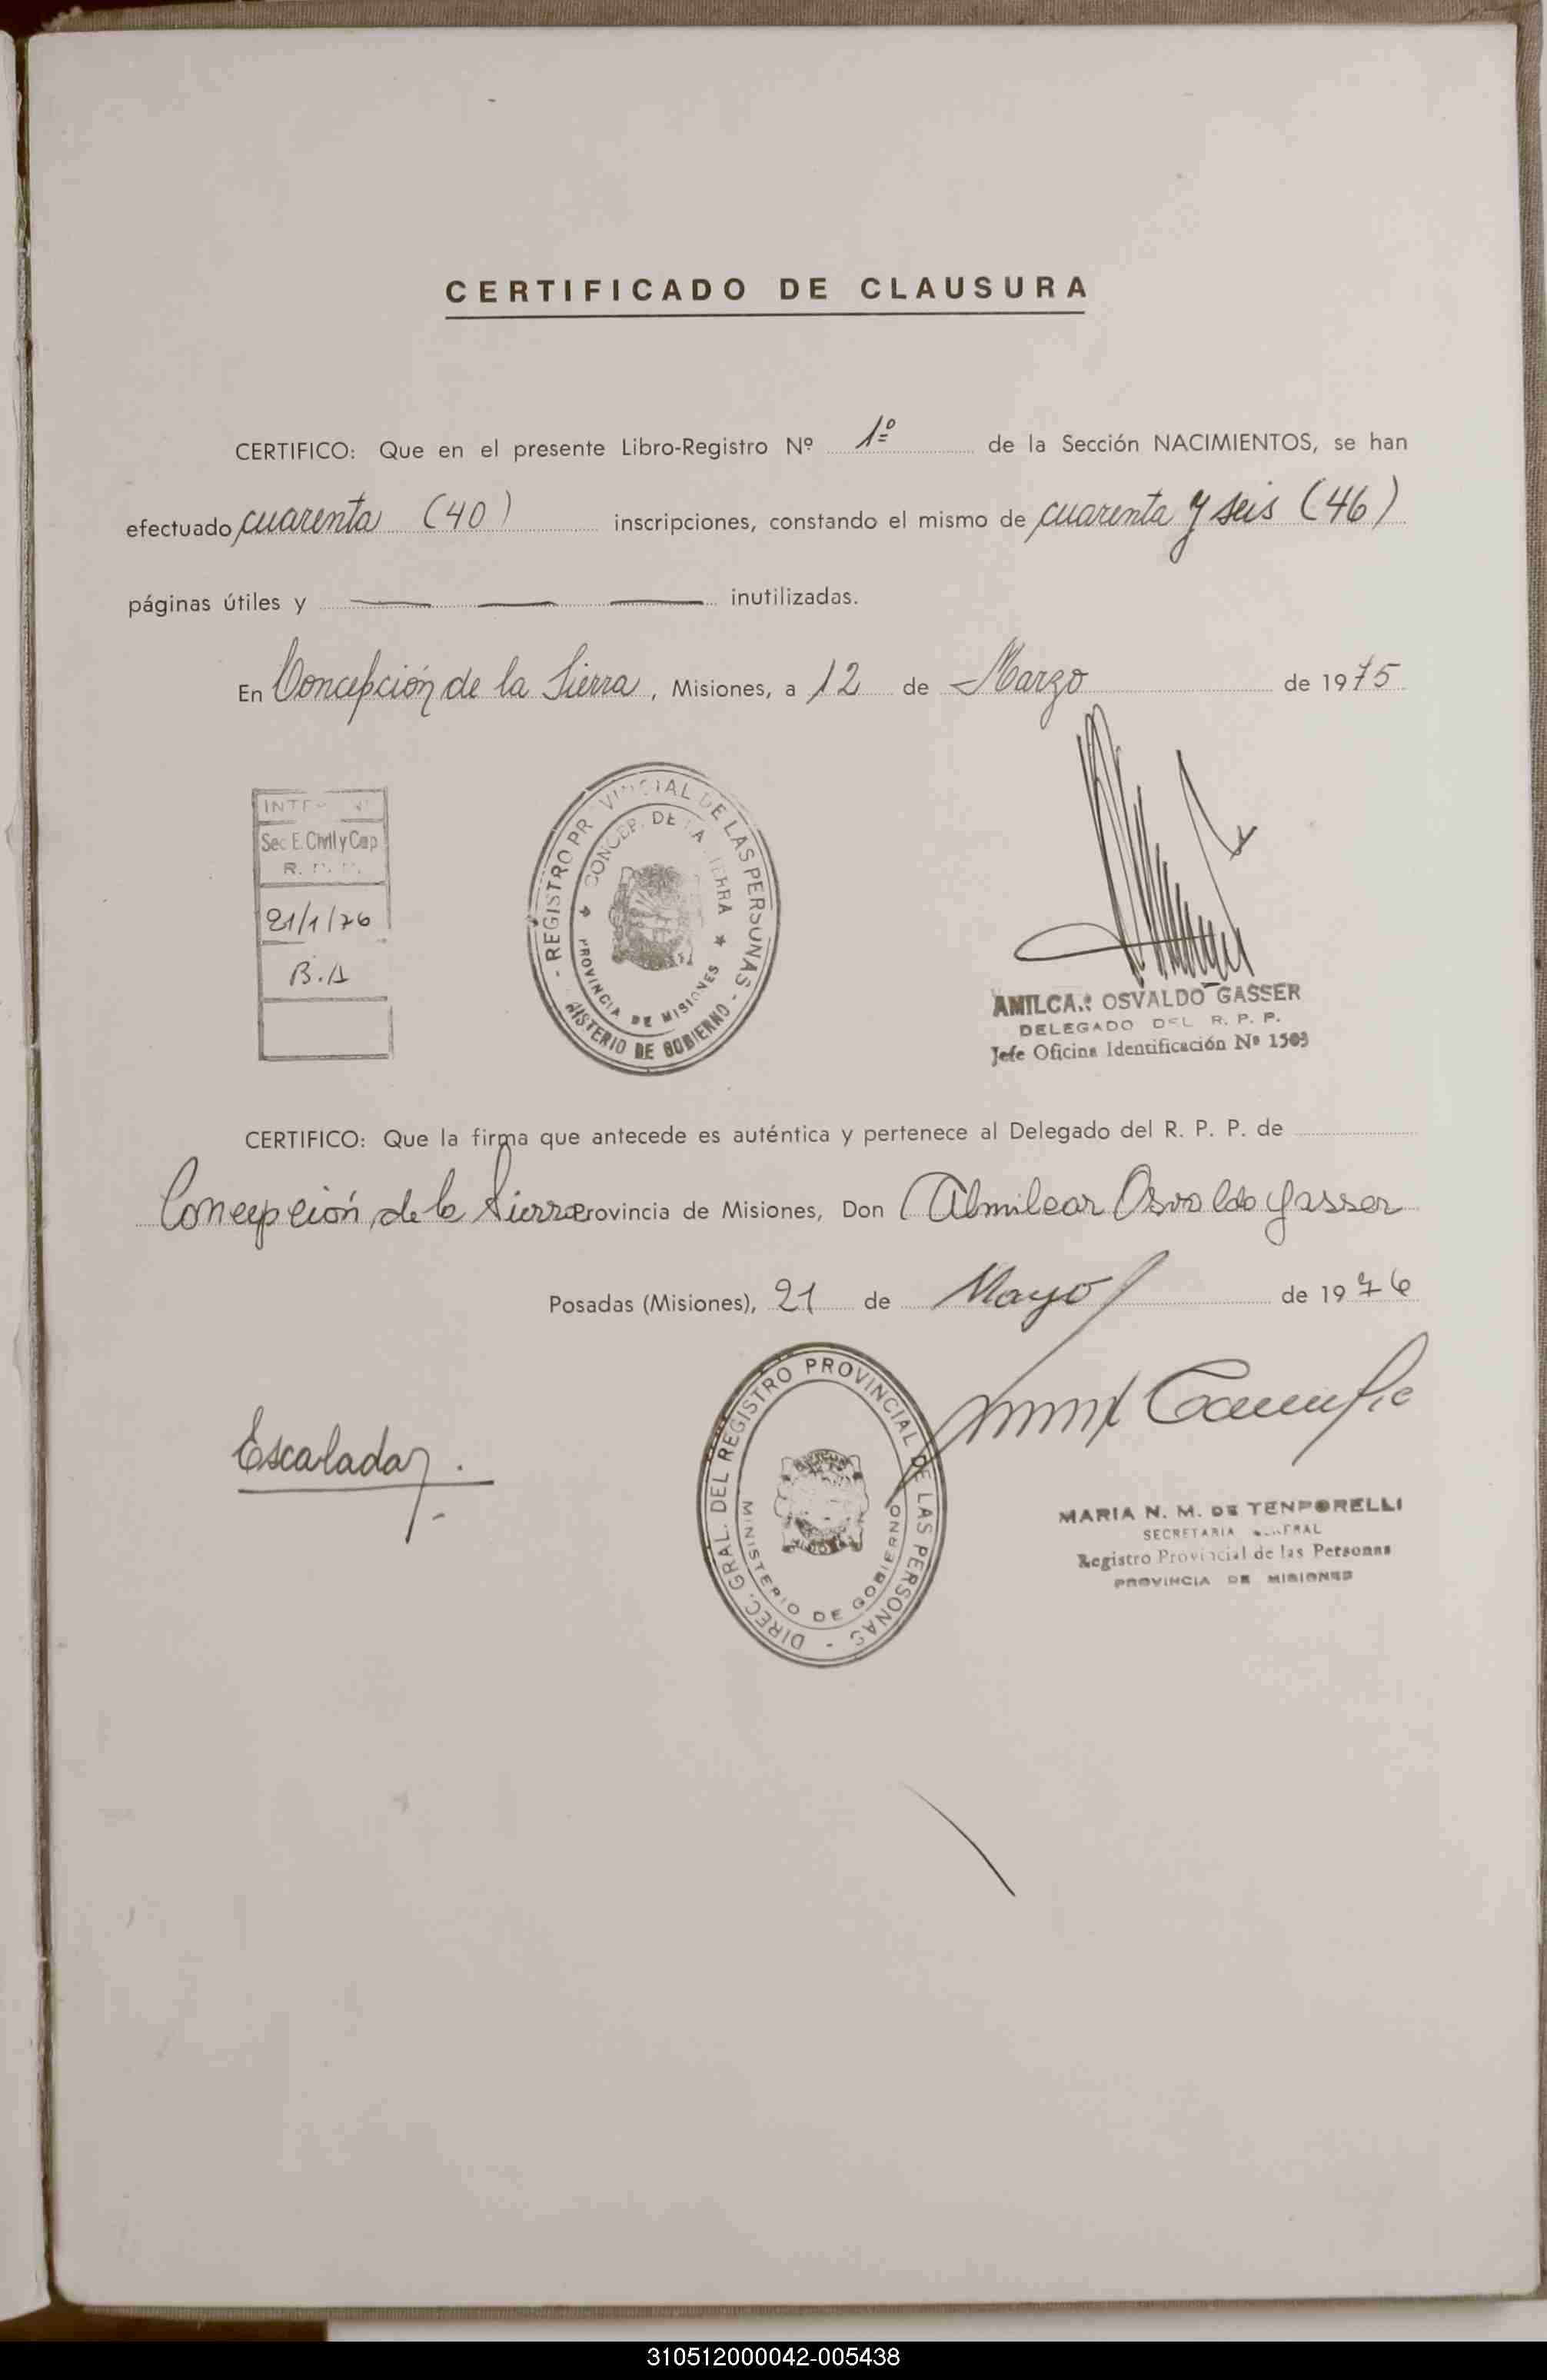 CERTIFICADO DE CLAUSURA
CERTIFICO: Que en el presente Libro-Registro Nº 1º de la Sección NACIMIENTOS, se han
efectuado cuarenta (40) inscripciones, constando el mismo de cuarenta y seis (46)
páginas útiles y — — — inutilizadas.
En Concepción de la Sierra, Misiones, a 12 de Marzo de 1975
Sec E. Civil y Cap
R.
21/1/76
B.A
- REGISTRO PROVINCIAL DE LAS PERSONAS -
CONCEP. DE LA SIERRA
PROVINCIA DE MISIONES
NISTERIO DE GOBIERNO
AMILCAR OSVALDO GASSER
DELEGADO DEL R. P. P.
Jefe Oficina Identificación Nº 1503
CERTIFICO: Que la firma que antecede es auténtica y pertenece al Delegado del R. P. P. de
Concepción de la Sierra Provincia de Misiones, Don Almilcar Osvaldo Gasser
Posadas (Misiones), 21 de Mayo de 1976
Escalada
DIREC. GRAL. DEL REGISTRO PROVINCIAL DE LAS PERSONAS -
MINISTERIO DE GOBIERNO
MARIA N. M. DE TENPORELLI
SECRETARIA GENERAL
Registro Provincial de las Personas
PROVINCIA DE MISIONES
310512000042-005438